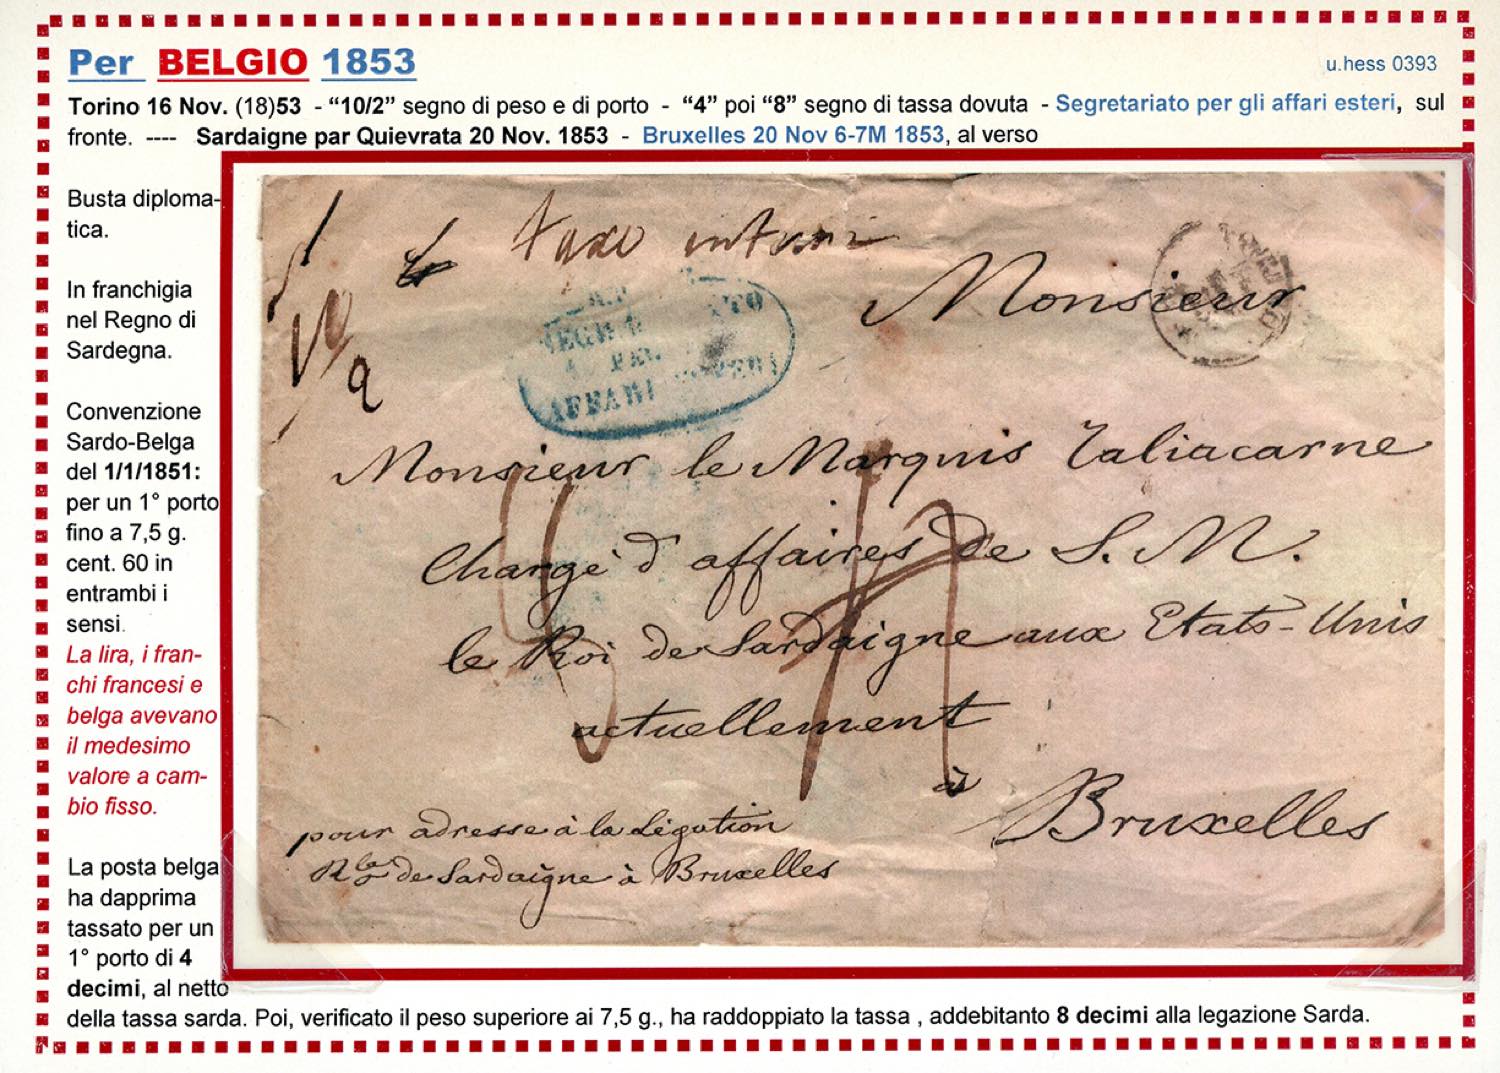 Per BELGIO 1853
u.hess 0393
Torino 16 Nov. (18)53 - “10/2” segno di peso e di porto - “4” poi “8” segno di tassa dovuta - Segretariato per gli affari esteri, sul
fronte. ---- Sardaigne par Quievrata 20 Nov. 1853 - Bruxelles 20 Nov 6-7M 1853, al verso
Busta diploma-
tica.
In franchigia
nel Regno di
Sardegna.
Convenzione
Sardo-Belga
del 1/1/1851:
per un 1° porto
fino a 7,5 g.
cent. 60 in
entrambi i
sensi.
La lira, i fran-
chi francesi e
belga avevano
il medesimo
valore a cam-
bio fisso.
La posta belga
ha dapprima
tassato per un
1° porto di 4
decimi, al netto
della tassa sarda. Poi, verificato il peso superiore ai 7,5 g., ha raddoppiato la tassa , addebitanto 8 decimi alla legazione Sarda.
10
2
AFFARI
Monsieur
Monsieur le Marquis Taliacarne
Chargé d'affaires de S. M.
le Roi de Sardaigne aux Etats-Unis
actuellement
à
Bruxelles
pour adresse à la Légation
Rle de Sardaigne à Bruxelles